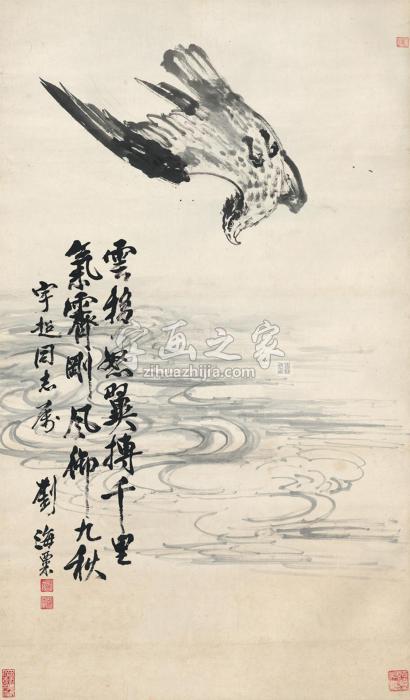 雲梢怒翼搏千里
氣霽剛風御九秋
宇超同志屬
劉海粟
字画之家
zihuazhijia.com